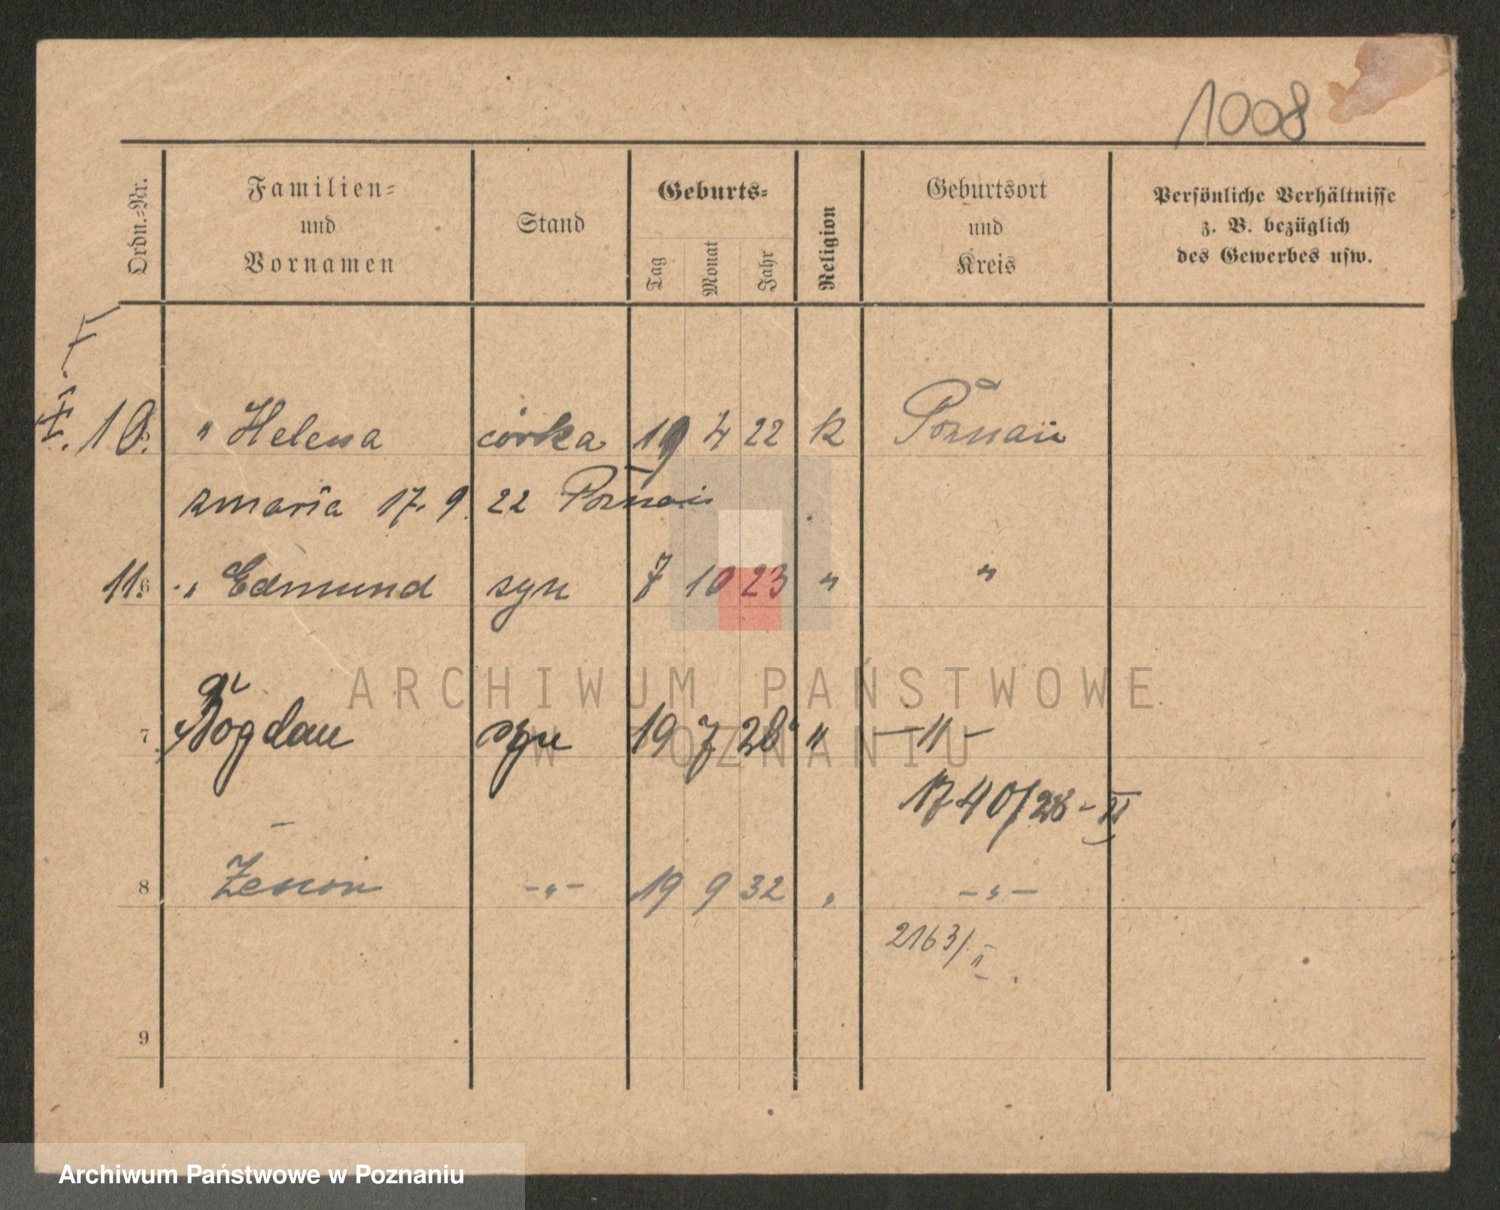 1008
Ordn.-Nr. Familien- und Vornamen Stand Geburts- Tag Monat Jahr Religion Geburtsort und Kreis Persönliche Verhältnisse z. B. bezüglich des Gewerbes usw.
10. " Helena córka 19 4 22 k Poznań
zmarła 17. 9. 22 Poznań
11. 6 " Edmund syn 7 10 23 " "
7 Bogdan syn 19 7 28 " —"—
1740/28 - II
8 Zenon —"— 19 9 32 " —"—
2163/II
9
ARCHIWUM PAŃSTWOWE
W POZNANIU
Archiwum Państwowe w Poznaniu